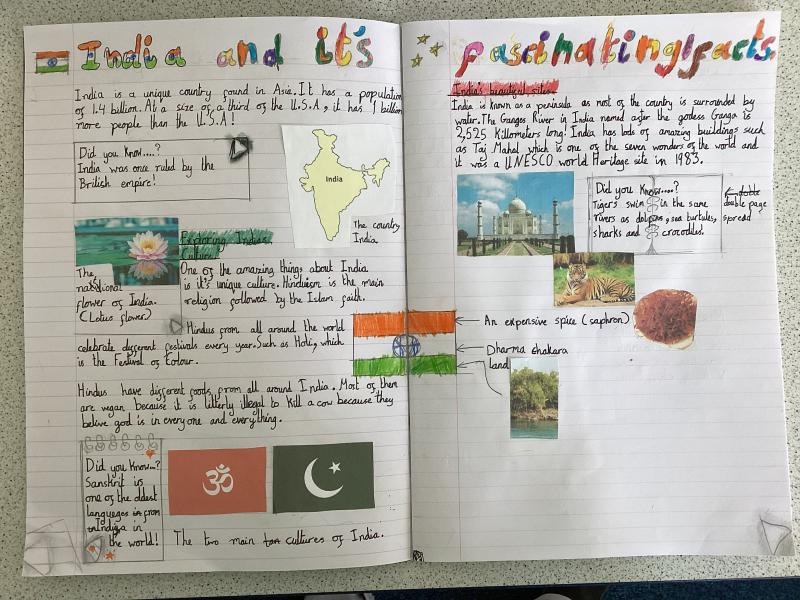 India and it's
India is a unique country found in Asia. It has a population
of 1.4 billion. At a size of a third of the U.S.A, it has 1 billion
more people than the U.S.A!
Did you know....?
India was once ruled by the
British empire!
India
The country,
India
Exploring India's
Culture
The
national
flower of India.
(Lotus flower)
One of the amazing things about India
is it's unique culture. Hinduism is the main
religion followed by the Islam faith.
Hindus from all around the world
celebrate different festivals every year. Such as Holi, which
is the Festival of Colour.
Hindus have different foods from all around India. Most of them
are vegan because it is litterly illegal to kill a cow because they
belive god is in everyone and everything.
Did you know...?
Sanskrit is
one of the oldest
languages in from
in India in
the world!
ॐ
The two main cultures of India.
fascinating facts
India's beautiful sites
India is known as a peninsula as most of the country is surrounded by
water. The Ganges River in India named after the godess Ganga is
2,525 killometers long! India has lots of amazing buildings such
as Taj Mahal which is one of the seven wonders of the world and
it was a UNESCO world Heritage site in 1983.
Did you know....?
Tigers swim in the same
rivers as dolpins, sea turtules,
sharks and crocodiles!
double
double page
spread
An expensive spice (saphron)
Dharma chakara
land